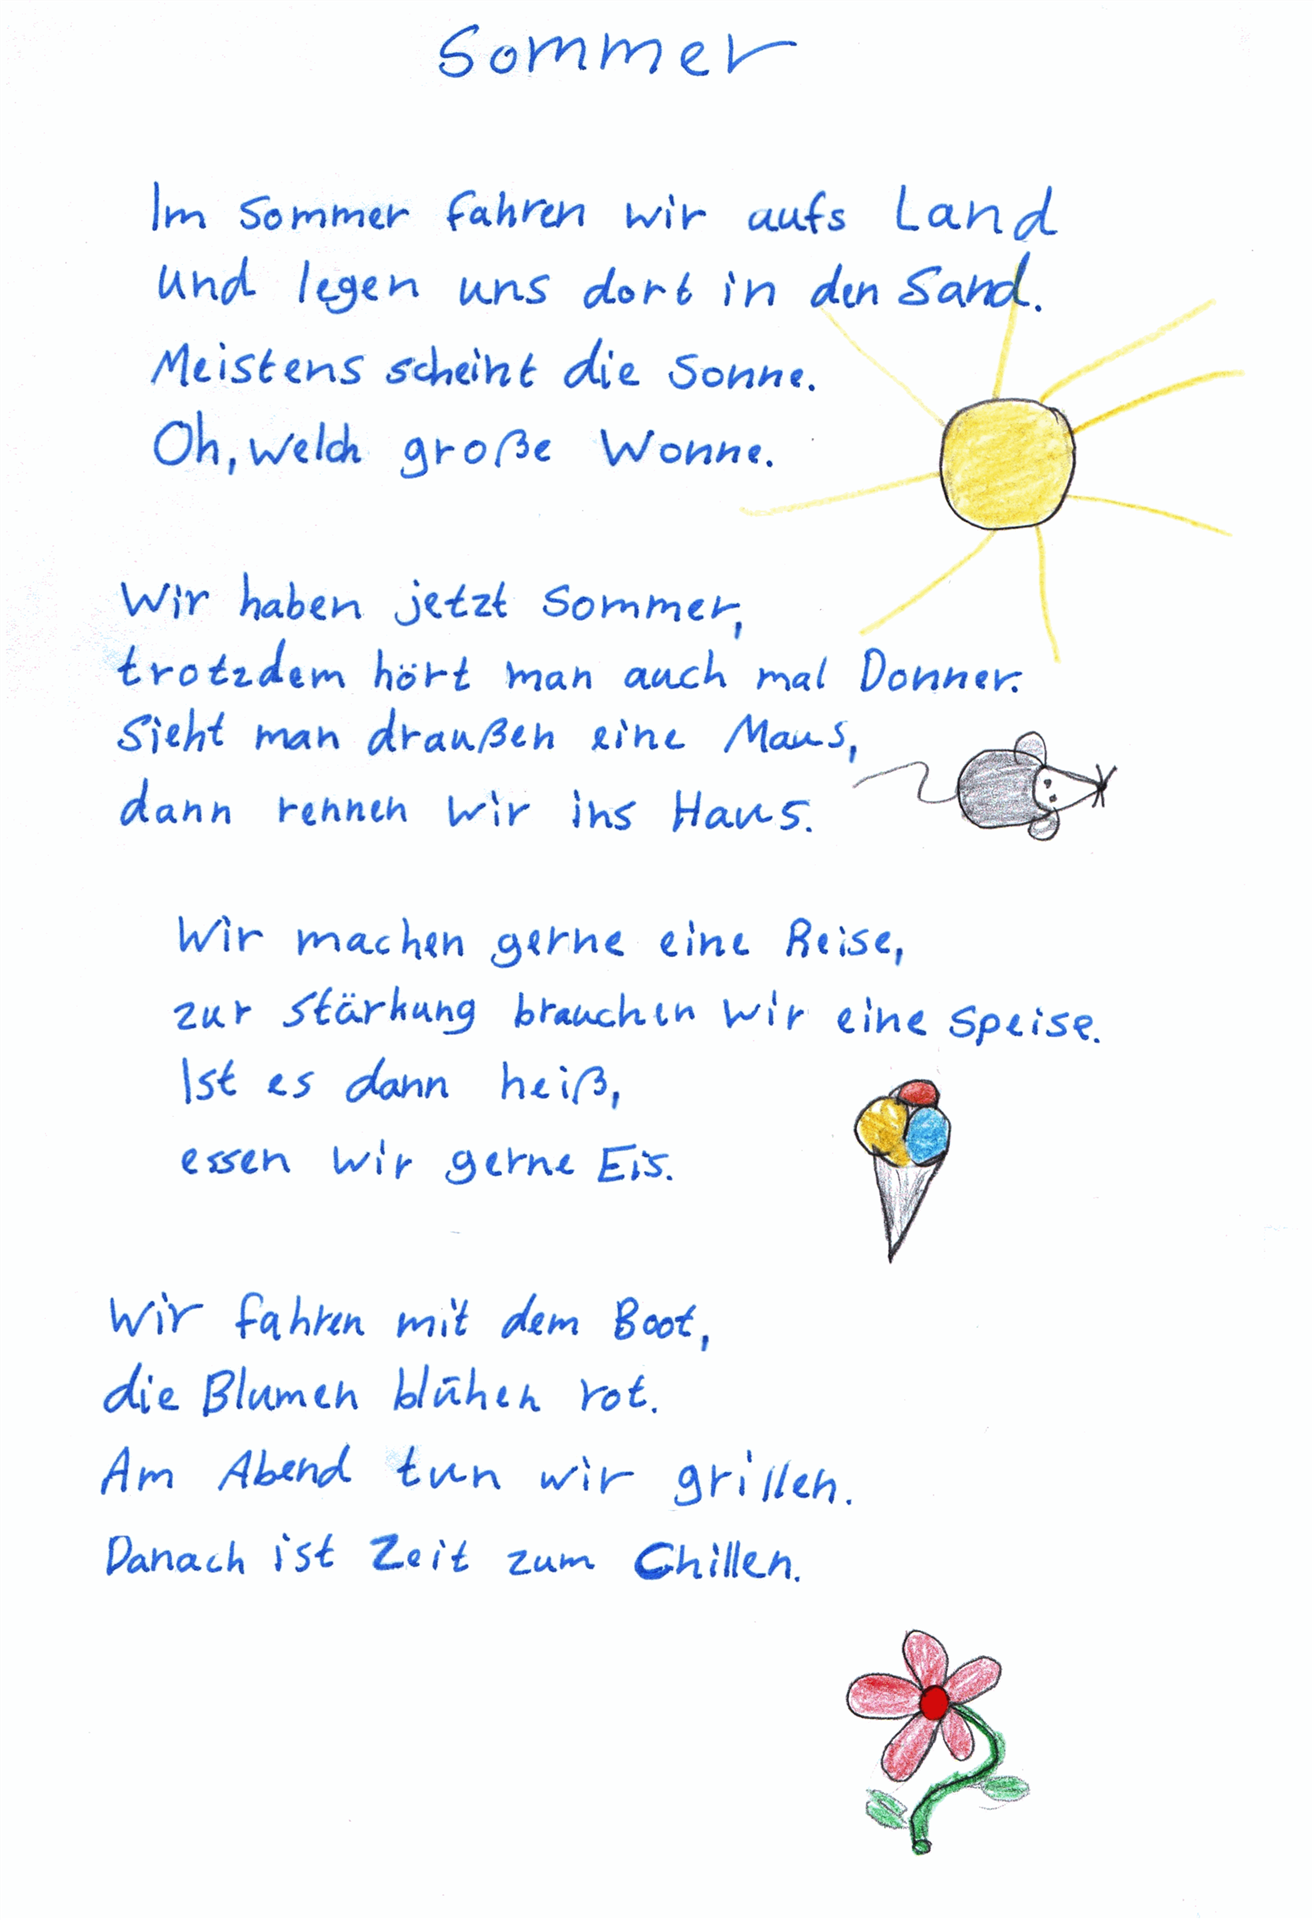 Sommer
Im Sommer fahren wir aufs Land
und legen uns dort in den Sand.
Meistens scheint die Sonne.
Oh, welch große Wonne.
Wir haben jetzt Sommer,
trotzdem hört man auch mal Donner.
Sieht man draußen eine Maus,
dann rennen wir ins Haus.
Wir machen gerne eine Reise,
zur Stärkung brauchen wir eine Speise.
Ist es dann heiß,
essen wir gerne Eis.
Wir fahren mit dem Boot,
die Blumen blühen rot.
Am Abend tun wir grillen.
Danach ist Zeit zum Chillen.